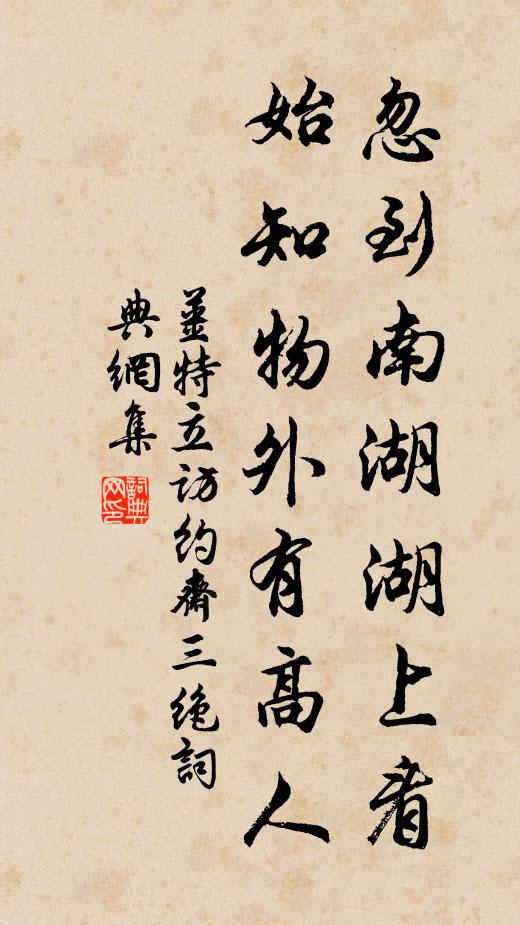 忽到南湖湖上看
始知物外有高人
姜特立访约斋三绝詞
典網集
詞典網印